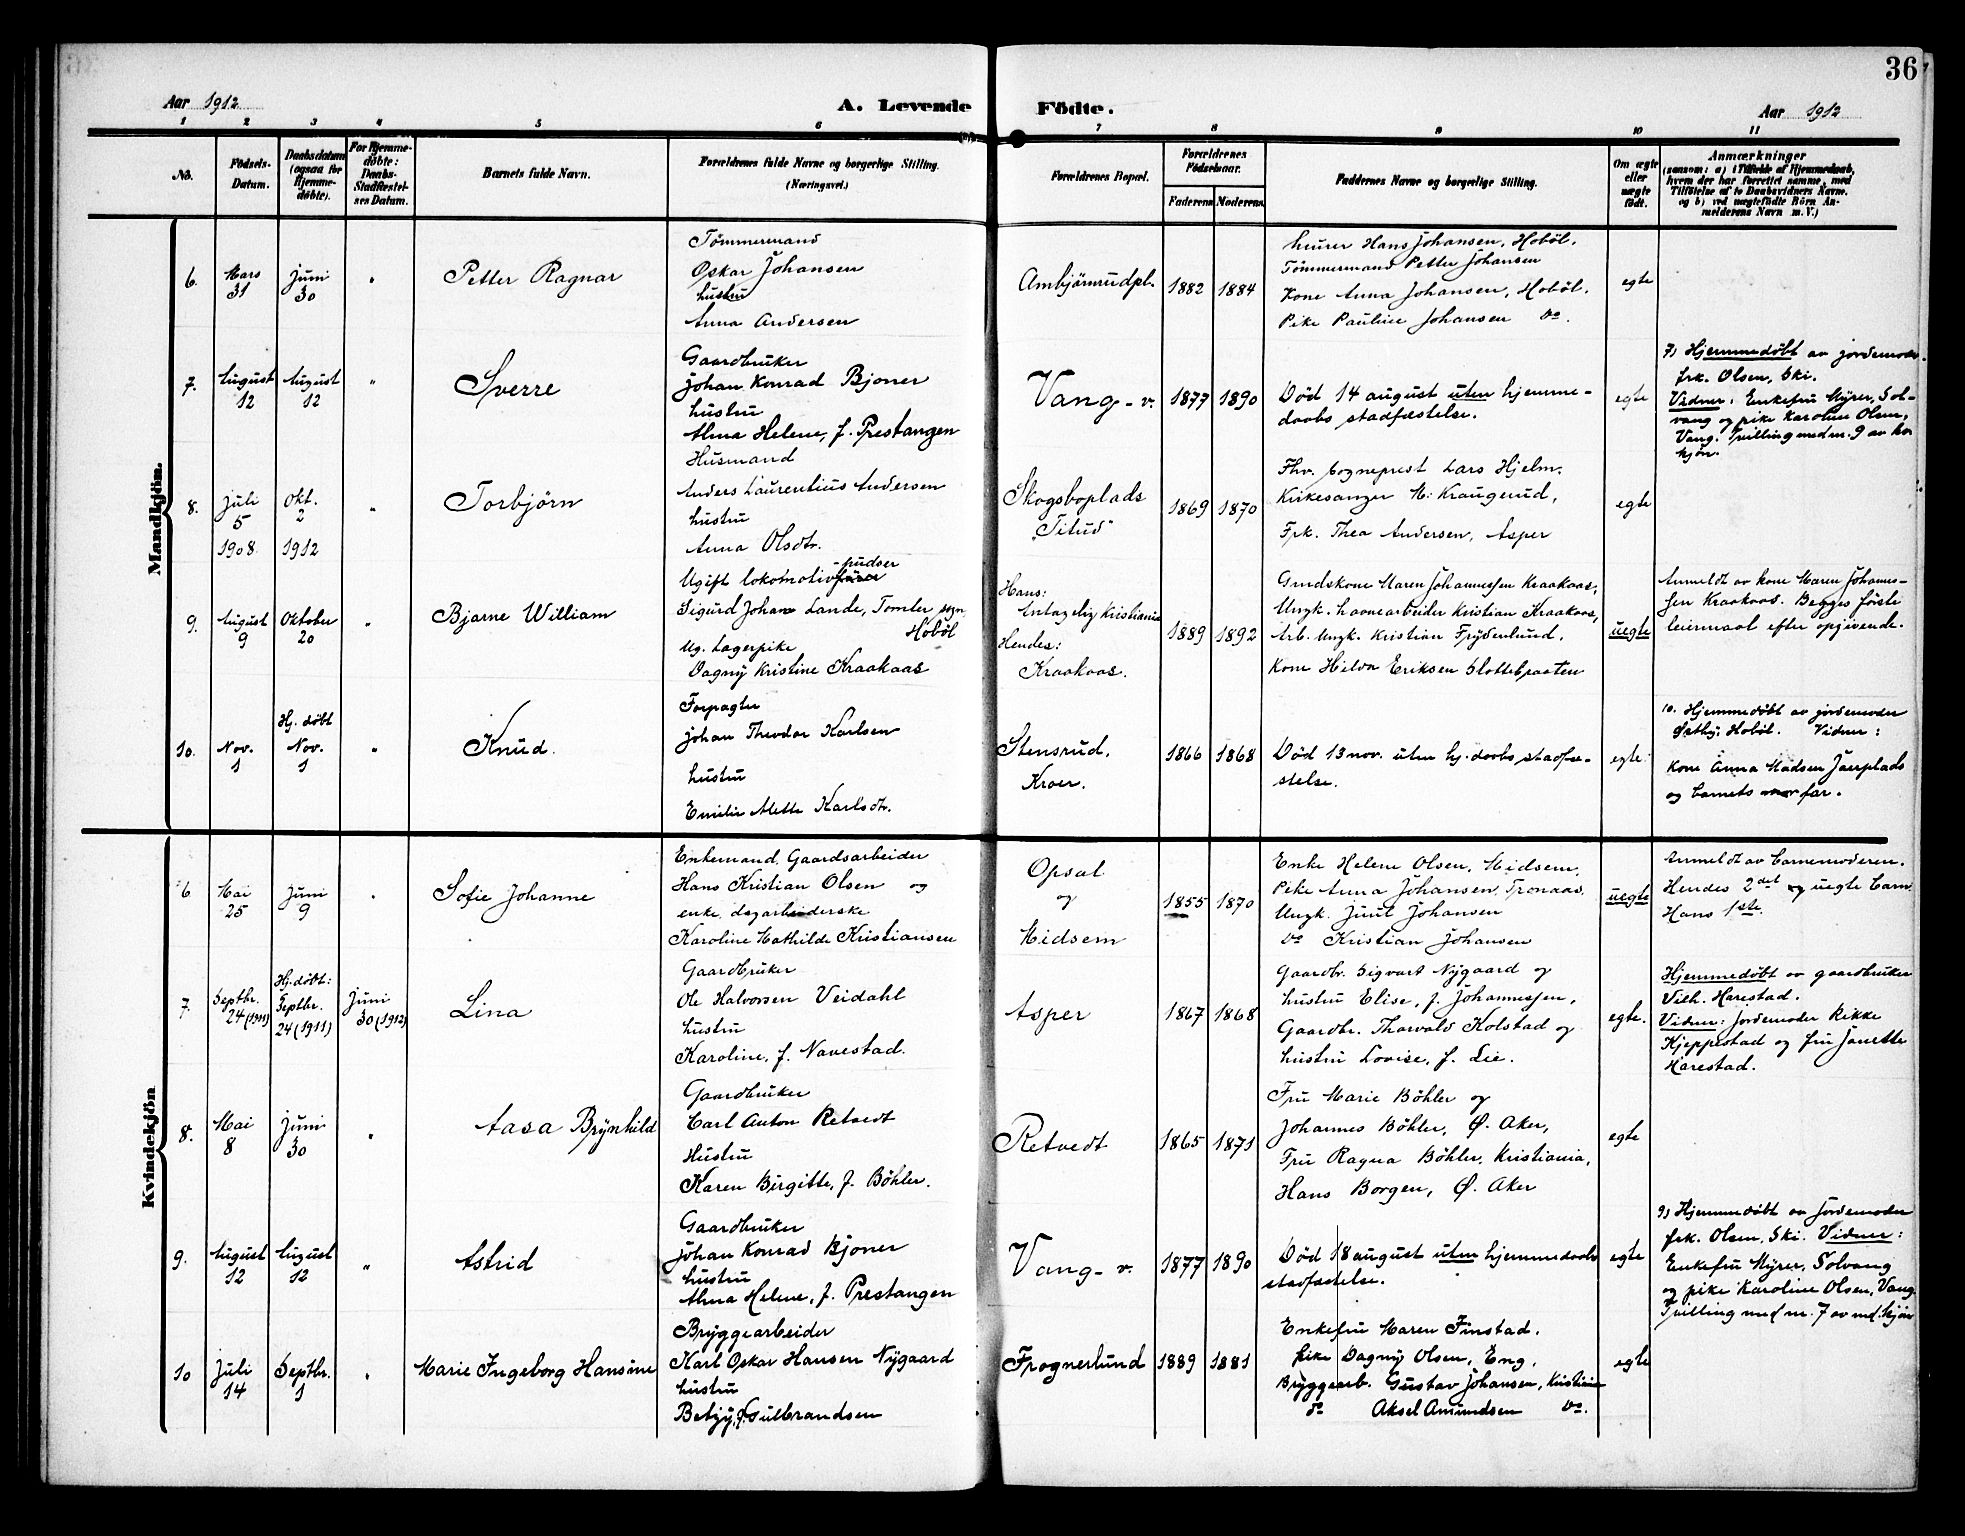 36
Aar 1912
A. Levende Födte.
Aar 1912
1 2 3 4 5 6 7 8 9 10 11
No.
Födsels-
Datum.
Daabsdatum
(ogsaa for
Hjemme-
döbte).
For Hjemme-
döbte:
Daabs-
Stadfæstel-
ses Datum.
Barnets fulde Navn.
Forældrenes fulde Navne og borgerlige Stilling.
(Næringsvei.)
Forældrenes Bopæl.
Forældrenes
Födselsaar.
Faderens Moderens
Faddernes Navne og borgerlige Stilling.
Om ægte
eller
uægte
födt.
Anmærkninger
(saasom: a) i Tilfælde af Hjemmedaab,
hvem der har forrettet samme, med
Tilföielse af to Daabsvidners Navne.
og b) ved uægtefödte Börn An-
melderens Navn m. V.)
Mandkjön.
6.
Mars
31
Juni
30
"
Petter Ragnar
Tömmermand
Oskar Johansen
hustru
Anna Andersen
Ambjörnrudpl.
1882 1884
Hans Johansen, Hoböl.
Tömmermand Petter Johansen
Kone Anna Johansen, Hoböl.
Pike Pauline Johansen Do.
egte
7.
August
12
August
12
"
Sverre
Gaardbruker
Johan Konrad Bjoner
hustru
Alma Helene, f. Prestangen
Vang - v.
1877 1890
Död 14 august uten hjemme-
daabs stadfæstelse.
egte
7) Hjemmedöbt av jordemoder
frk. Olsen, Ski.
Vidner: Enkefru Myrer, Sol-
vang og pike Karoline Olsen,
Vang. Tvilling med nr. 9 av kv.
kjön.
8.
Juli
5
1908
Okt.
2
1912
"
Torbjörn
Husmand
Anders Laurentius Andersen
hustru
Anna Olsdtr.
Skogsboplads
"Titud"
1869 1870
Fhv. Sogneprest Lars Hjelm.
Kirkesanger M. Kraugerud,
Frk. Thea Andersen, Asper
egte
9.
August
9
Oktober
20
"
Bjarne William
-pudser
Ugift lokomotivförer
Sigurd Johan Lande, Tomter sogn
Hoböl
Ug. Lagerpike
Dagny Kristine Kraakaas
Hans:
Antagelig Kristiania
Hendes:
Kraakaas.
1889 1892
Grudskone Maren Johannessen Kraakaas,
Ungk. havnearbeider Kristian Kraakaas,
Arb. Ungk. Kristian Frydenlund,
Kone Helda Eriksen Slottebraaten
uegte
Anmeldt av kone Maren Johannes-
sen Kraakaas. Begges förste
leiermaal efter opgivende.
10.
Nov.
1
Hj. döbt
Nov.
1
"
Knud.
Forpagter
Johan Theodor Karlsen
hustru
Emilie Mette Karlsdtr.
Stensrud.
Kroer.
1866 1868
Död 13 nov. uten hj. daabs stadfæ-
stelse.
egte
10. Hjemmedöbt av jordemoder
Östby, Hoböl. Vidner:
Kone Anna Madsen Jaerplads
og barnets far.
Kvindekjön
6
Mai
25
Juni
9
"
Sofie Johanne
Enkemand, Gaardsarbeider
Hans Kristian Olsen og
enke, dagarbeiderske
Karoline Mathilde Kristiansen
Opsal
og
Midsem
1855 1870
Enke Helene Olsen, Midsem,
Pike Anna Johansen, Tronaas
Ungk. Juul Johansen
Do Kristian Johansen
uegte
Anmeldt av barnemoderen.
Hendes 2det og uegte barn
Hans 1ste.
7.
Septbr.
24 (1911)
Hj. döbt:
Septbr.
24 (1911)
Juni
30 (1912)
Lina
Gaardbruker
Ole Halvorsen Veidahl
hustru
Karoline, f. Navestad.
Asper
1867 1868
Gaardbr. Sigvart Nygaard og
hustru Elise, f. Johannessen,
Gaardbr. Thorvald Kolstad og
hustru Lovise, f. Lie.
egte.
Hjemmedöbt av gaardbruker
Vilh. Harestad.
Vidner: Jordemoder Rikke
Kjeppestad og fru Janette
Harestad.
8.
Mai
8
Juni
30
"
Aasa Brynhild
Gaardbruker
Carl Anton Retvedt
Hustru
Karen Birgitte, f. Böhler.
Retvedt
1865 1871
Fru Marie Böhler og
Johannes Böhler, Ø. Aker,
Fru Ragna Böhler, Kristiania,
Hans Borgen, Ø. Aker
egte
9.
August
12
August
12
"
Astrid
Gaardbruker
Johan Konrad Bjoner
hustru
Alma Helene, f. Prestangen
Vang - v.
1877 1890
Död 18 august uten hjemmedaabs
stadfæstelse.
egte
9) Hjemmedöbt av Jordemoder
frk. Olsen, Ski. Vidner:
Enkefru Myrer, Solvang
og pike Karoline Olsen, Vang.
Tvilling med nr. 7 av md. kjön
10
Juli
14
Septbr.
1
"
Marie Ingeborg Hansine
Bryggearbeider
Karl Oskar Hansen Nygaard
hustru
Betzy, f. Gulbrandsen
Frognerlund
1889 1881
Enkefru Maren Finstad.
pike Dagny Olsen, Eng,
Bryggearb. Gustav Johansen, Kristiania
do Aksel Amundsen Do.
egte